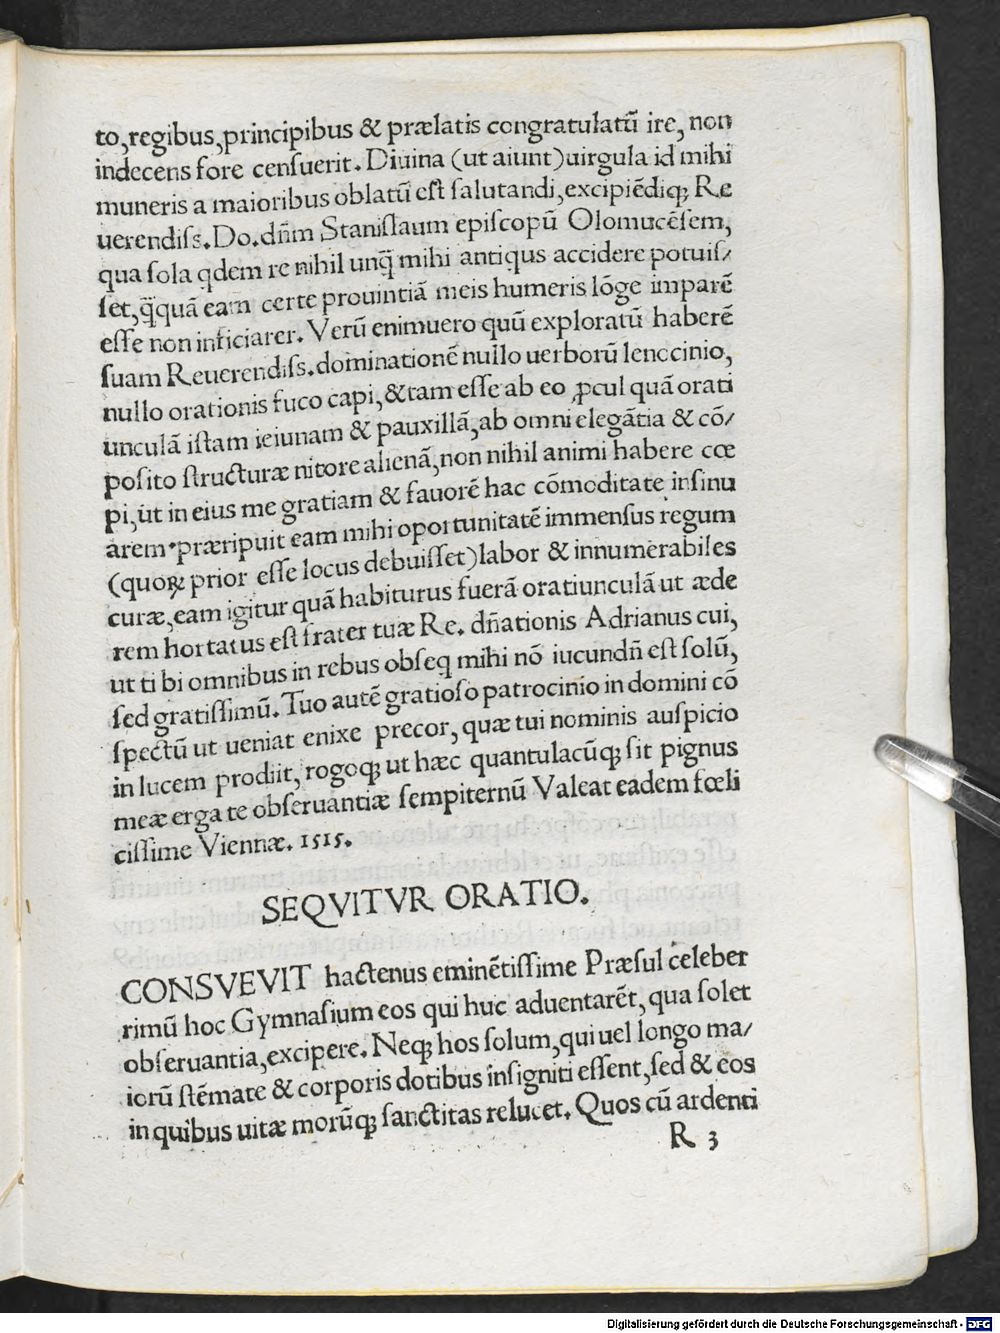 to,regibus,principibus & prælatis congratulatū ire, non
indecens fore censuerit. Diuina (ut aiunt)uirgula id mihi
muneris a maioribus oblatū est salutandi,excipiēdiqꝫ Re
uerendiss.Do.dn̄m Stanislaum episcopū Olomucēsem,
qua sola qdem re nihil unq̄ mihi antiqus accidere potuis/
set,q̄quā eam certe prouintiā meis humeris lōge imparē
esse non inficiarer. Verū enimuero quū exploratū haberē
suam Reuerendiss.dominationē nullo uerborū lenocinio,
nullo orationis fuco capi,&tam esse ab eo ꝓcul quā orati
unculā istam ieiunam & pauxillā,ab omni elegātia & cō/
posito structuræ nitore alienā,non nihil animi habere cœ
pi,ut in eius me gratiam & fauorē hac cōmoditate insinu
arem.præripuit eam mihi oportunitatē immensus regum
(quoꝝ prior esse locus debuisset)labor & innumerabiles
curæ,eam igitur quā habiturus fuerā oratiunculā ut æde
rem hortatus est frater tuæ Re. dn̄ationis Adrianus cui,
ut ti bi omnibus in rebus obseq mihi nō iucundn̄ est solū,
sed gratissimū. Tuo autē gratioso patrocinio in domini cō
spectū ut ueniat enixe precor, quæ tui nominis auspicio
in lucem prodiit, rogoqꝫ ut hæc quantulacūqꝫ sit pignus
meæ erga te obseruantiæ sempiternū Valeat eadem fœli
cissime Viennæ. 1515.
SEQVITVR ORATIO.
CONSVEVIT hactenus eminētissime Præsul celeber
rimū hoc Gymnasium eos qui huc aduentarēt, qua solet
obseruantia,excipere. Neqꝫ hos solum,qui uel longo ma/
iorū stēmate & corporis dotibus insigniti essent,sed & eos
in quibus uitæ morūqꝫ sanctitas relucet. Quos cū ardenti
R 3
Digitalisierung gefördert durch die Deutsche Forschungsgemeinschaft - DFG